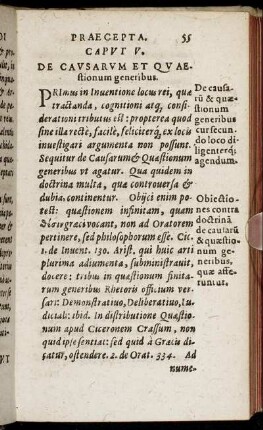 PRAECEPTA. 55
CAPVT V.
DE CAVSARVM ET QVAE-
stionum generibus.
PRimus in Inuentione locus rei, quæ
tractanda, cognitioni atq, consi-
derationi tributus est: propterea quod
sine illa rectè, facilè, feliciterq́, ex locis
inuestigari argumenta non possunt.
Sequitur de Causarum & Quæstionum
generibus vt agatur. Qua quidem in
doctrina multa, quæ controuersa &
dubia, continentur. Obijci enim po-
test: quæstionem infinitam, quam
vocant, non ad Oratorem
pertinere, sed philosophorum esse. Cic.
1. de Inuent. 130. Arist. qui huic arti
plurima adiumenta, subministrauit,
docere: tribus in quæstionum finita-
rum generibus Rhetoris officium ver-
sari: Demonstratiuo, Deliberatiuo, Iu-
diciali: ibid. In distributione Quæstio-
num apud Ciceronem Crassum, non
quid ipse sentiat: sed quid à Græcis di-
catur, ostendere. 2. de Orat. 334. Ad
nume-
De causa-
rū & quæ-
stionum
generibus
cur secun-
do loco di-
ligenterq́;
agendum.
Obiectio-
nes contra
doctrinā
de causarū
& quæstio-
num ge-
neribus,
quæ affe-
runtur.